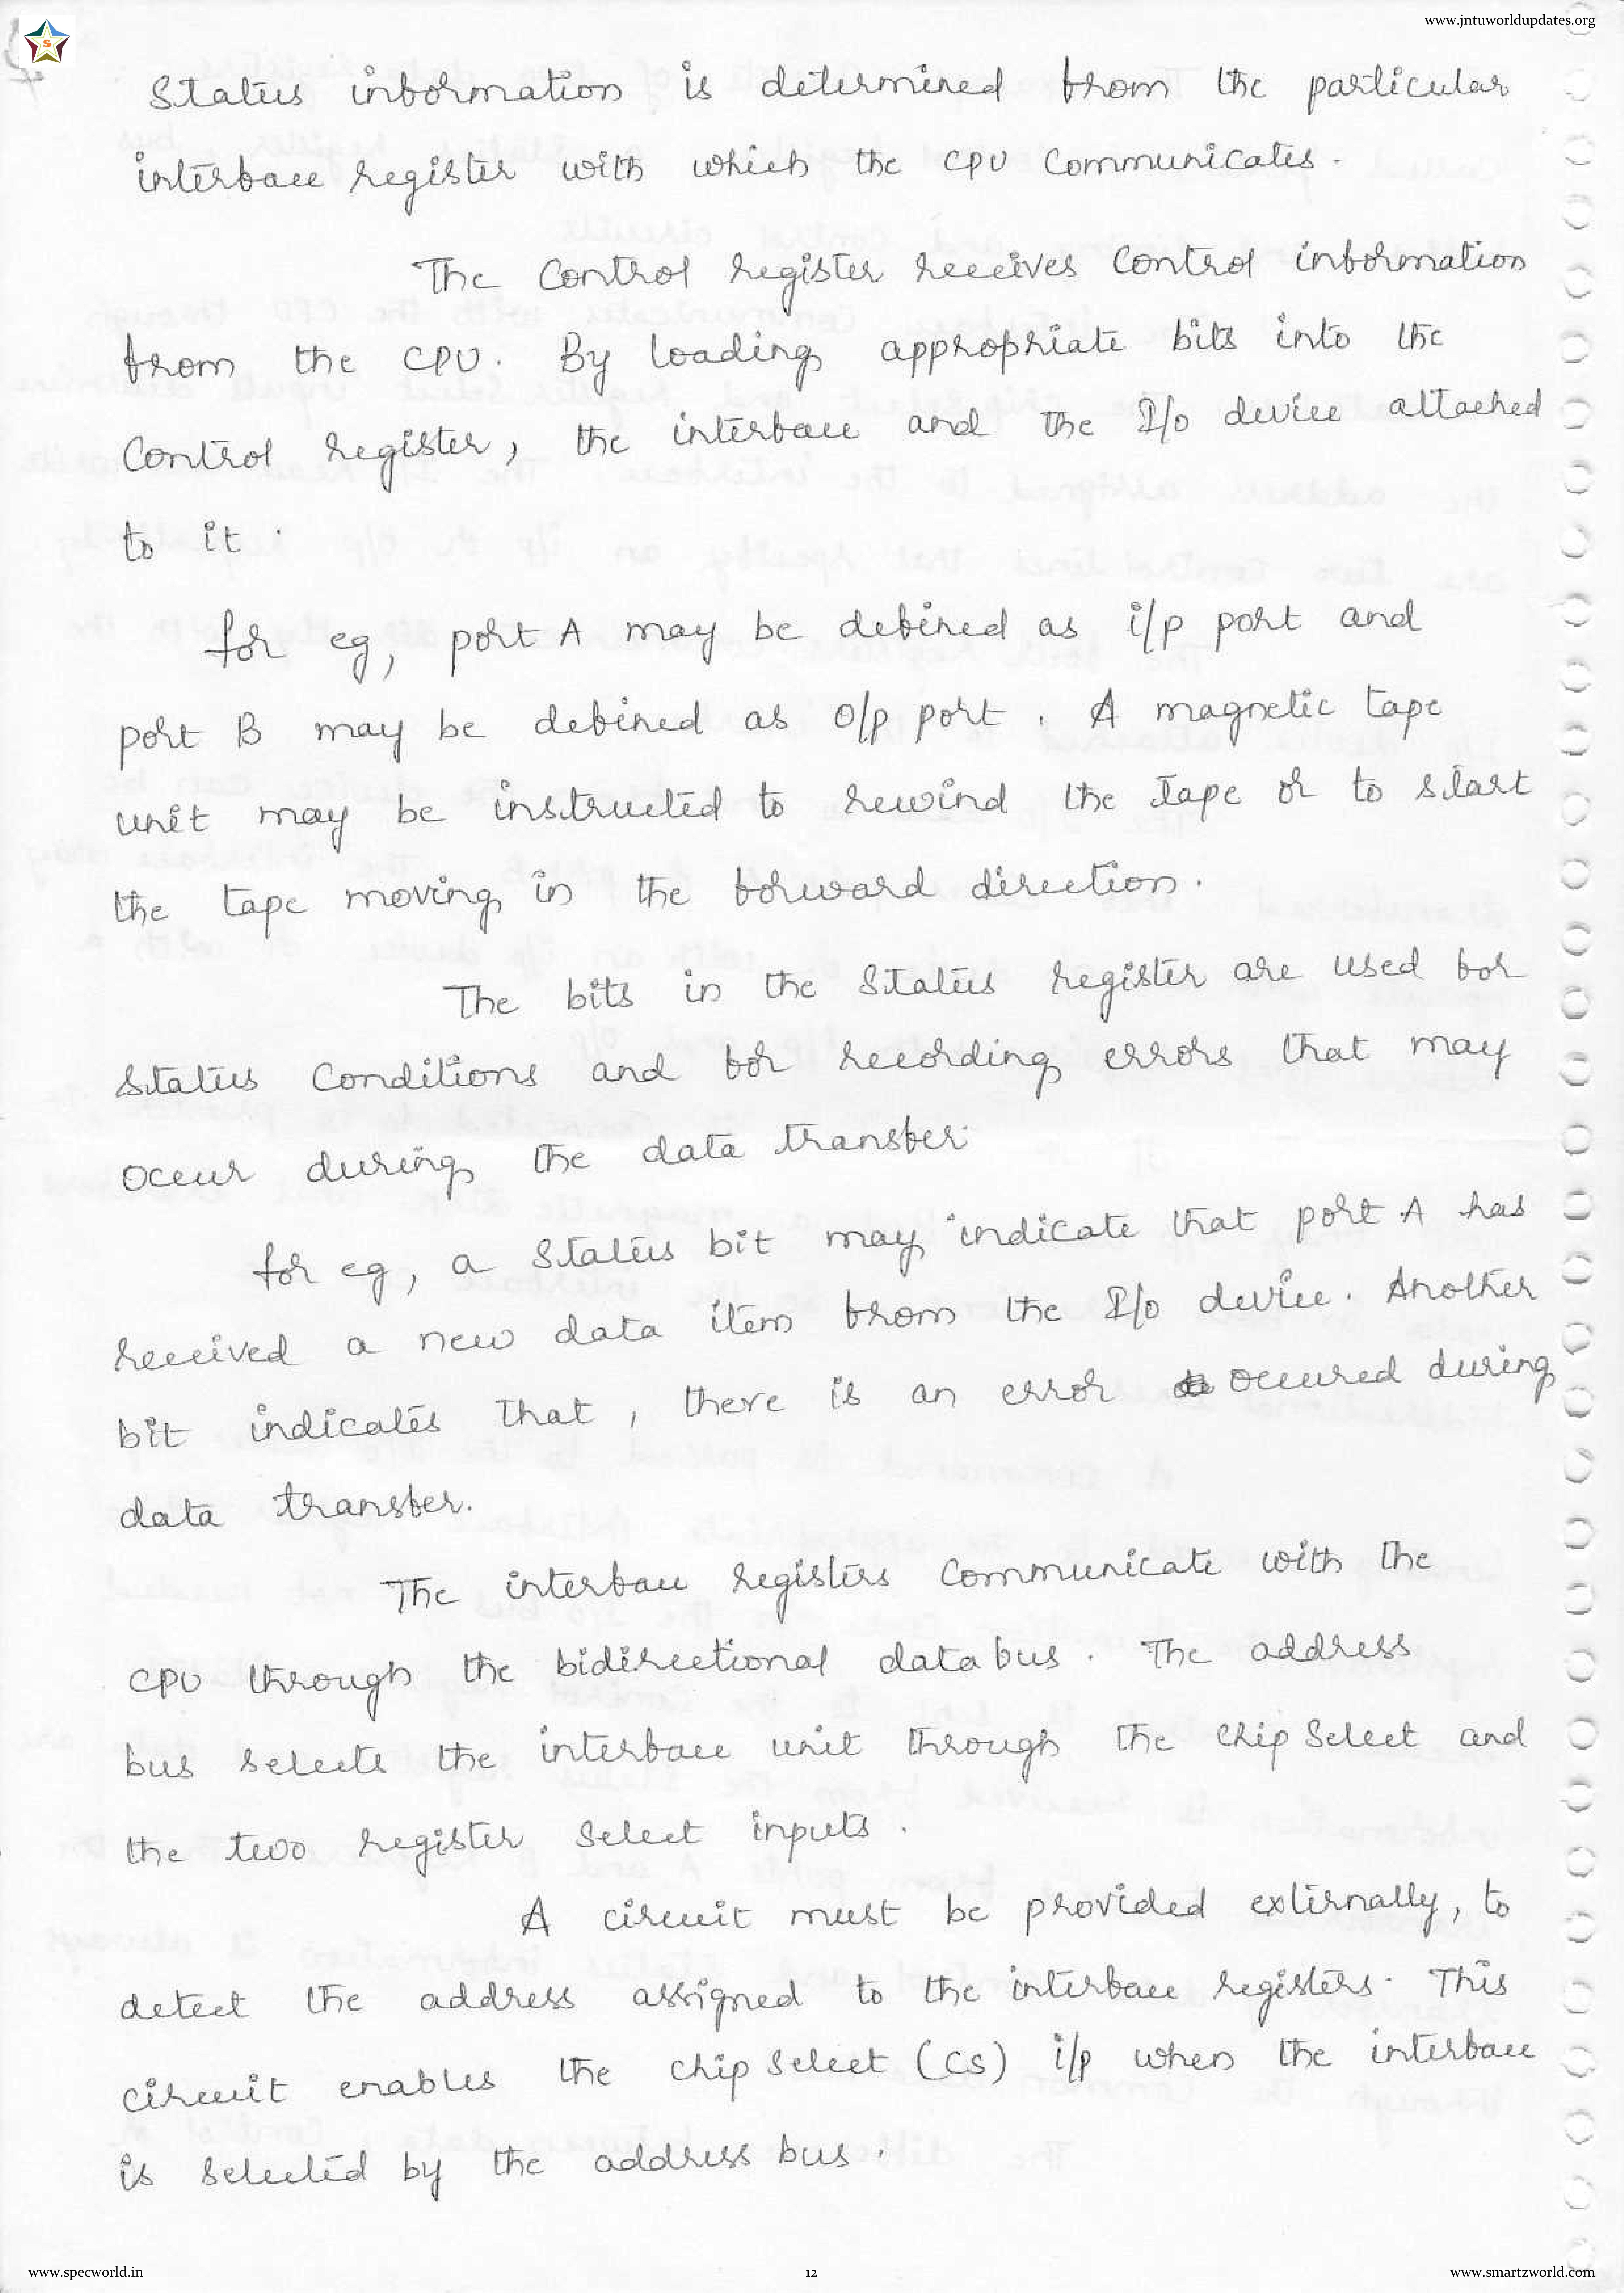 www.jntuworldupdates.org
S
Status information is determined from the particular
interface register with which the CPU Communicates.
The Control register receives Control information
from the CPU. By loading appropriate bits into the
Control register, the interface and the I/o device attached
to it.
for eg, port A may be defined as i/p port and
port B may be defined as o/p port. A magnetic tape
unit may be instructed to rewind the tape or to start
the tape moving in the forward direction.
The bits in the Status register are used for
status Conditions and for recording errors that may
occur during the data transfer.
for eg, a Status bit may indicate that port A has
received a new data item from the I/o device. Another
bit indicates that, there is an error occured during
data transfer.
The interface registers Communicate with the
CPU through the bidirectional data bus. The address
bus selects the interface unit through the chip Select and
the two register Select inputs.
A circuit must be provided externally, to
detect the address assigned to the interface registers. This
circuit enables the chip Select (CS) i/p when the interface
is selected by the address bus.
www.specworld.in
12
www.smartzworld.com